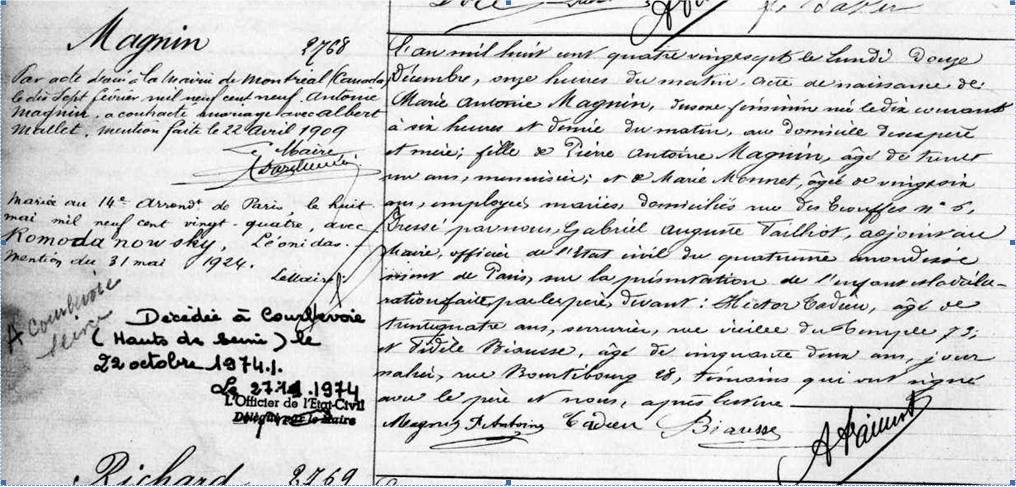 Magnin 2768
Par acte d'avis, la Mairie de Montréal (Canada)
le dix sept février mil neuf cent neuf. Antoine
Magnin, a contracté mariage avec Albert
Mallet. Mention faite le 22 Avril 1909
Le Maire
Mariée au 14e Arrondt de Paris, le huit
mai mil neuf cent vingt-quatre, avec
Komodanowsky, Léonidas.
Mention du 31 mai 1924.
Le Maire:
A Courbevoie
Seine
Décédée à Courbevoie
(Hauts de Seine) le
22 octobre 1974.
Le 1974
L'Officier de l'Etat-Civil
Délégué par le Maire
Richard 2769
L'an mil huit cent quatre vingt sept le Lundi Douze
Décembre, onze heures du matin. Acte de naissance de
Marie Antonie Magnin, de sexe féminin née le dix courant
à six heures et demie du matin, au domicile de ses père
et mère; fille de Pierre Antoine Magnin, âgé de trente
un ans, menuisier; et de Marie Monnet, âgée de vingt six
ans, employée, mariés, domiciliés rue des Ecouffes n° 6,
Dressé par nous, Gabriel Auguste Tailhot, adjoint au
Maire, officier de l'Etat civil du quatrième arrondisse
ment de Paris, sur la présentation de l'enfant et la décla-
ration faite par le père, devant: Hector Cadieu, âgé de
trente quatre ans, serrurier, rue vieille du Temple 73;
et Fidèle Biausse, âgé de cinquante deux ans, jour
nalier, rue Bourtibourg 28, témoins qui ont signé
avec le père et nous, après lecture
Magnin P. Antoine Cadieu Biausse